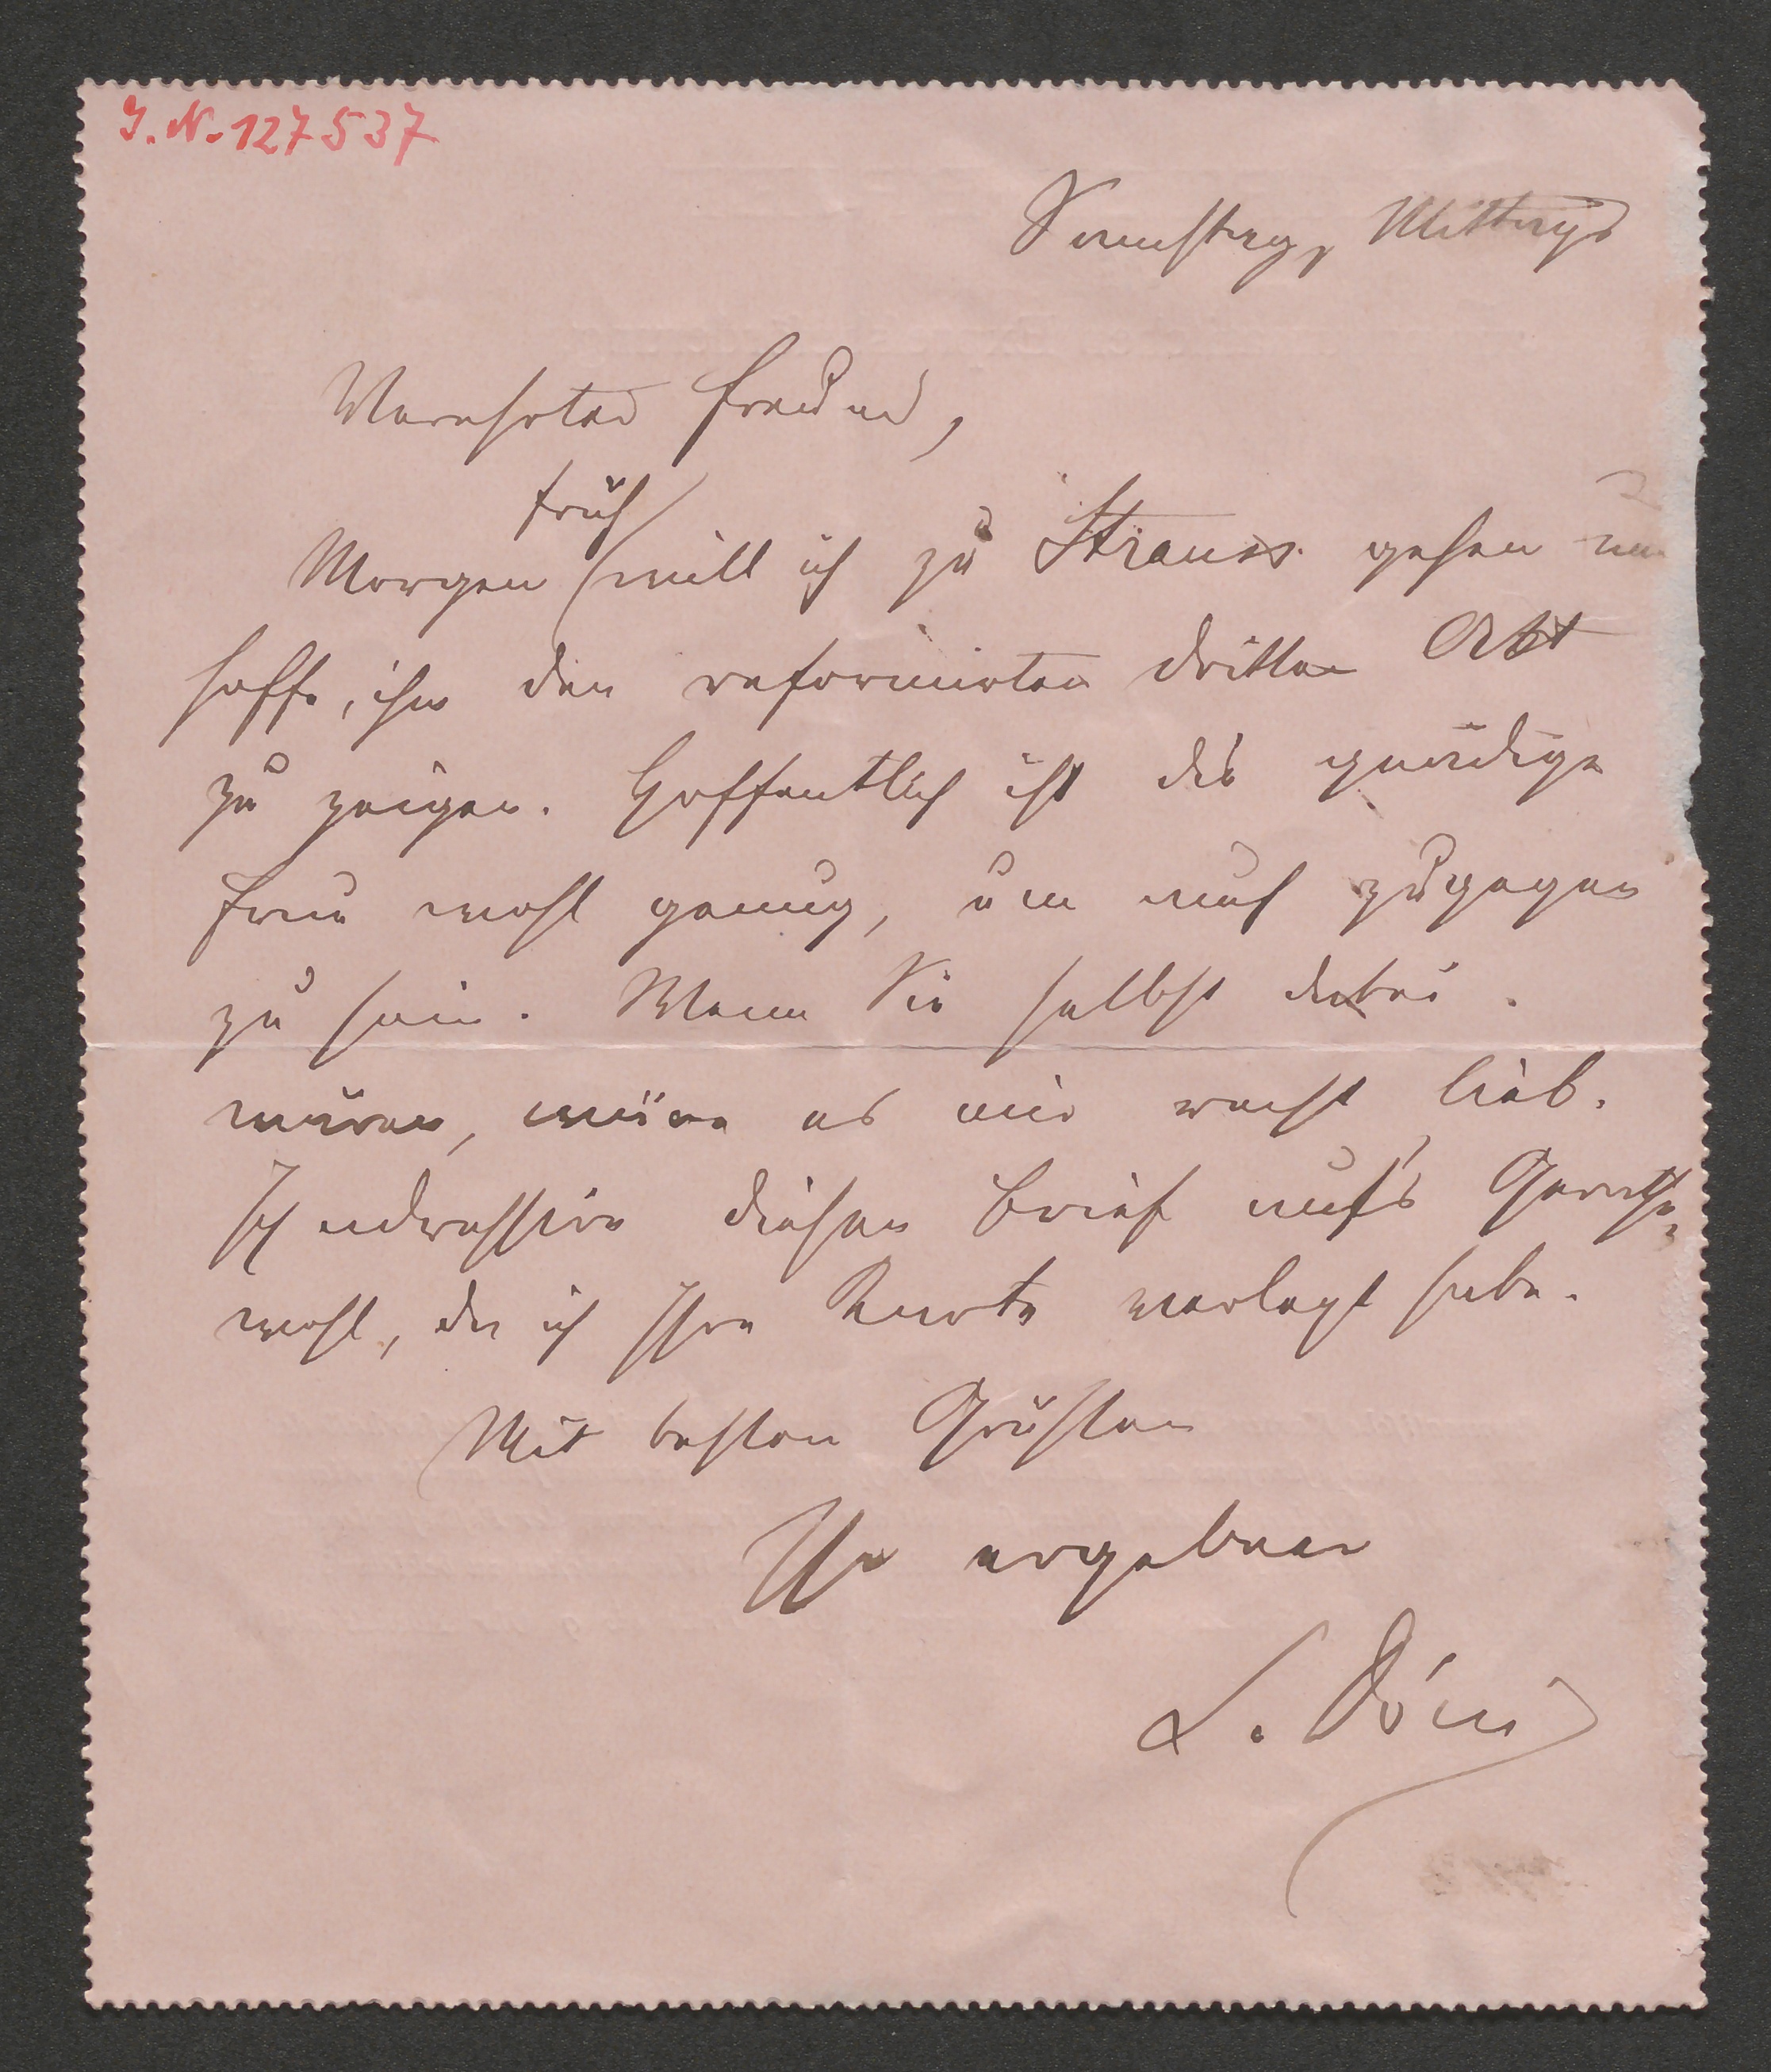 J. N. 127537
Samstag, Mittags
Verehrter Freund,
früh
Morgen will ich zu Strauss gehen
hoffe, ihm den reformirten dritten Akt
zu zeigen. Hoffentlich ist die gnädige
Frau wohl genug, um auch zugegen
zu sein. Wenn Sie selbst dabei
wären, wäre es mir recht lieb.
Ich adressire diesen Brief auf's Gerathe-
wohl, da ich Ihre Karte verlegt habe.
Mit besten Grüßen
Ihr ergebener
L. Dóczi